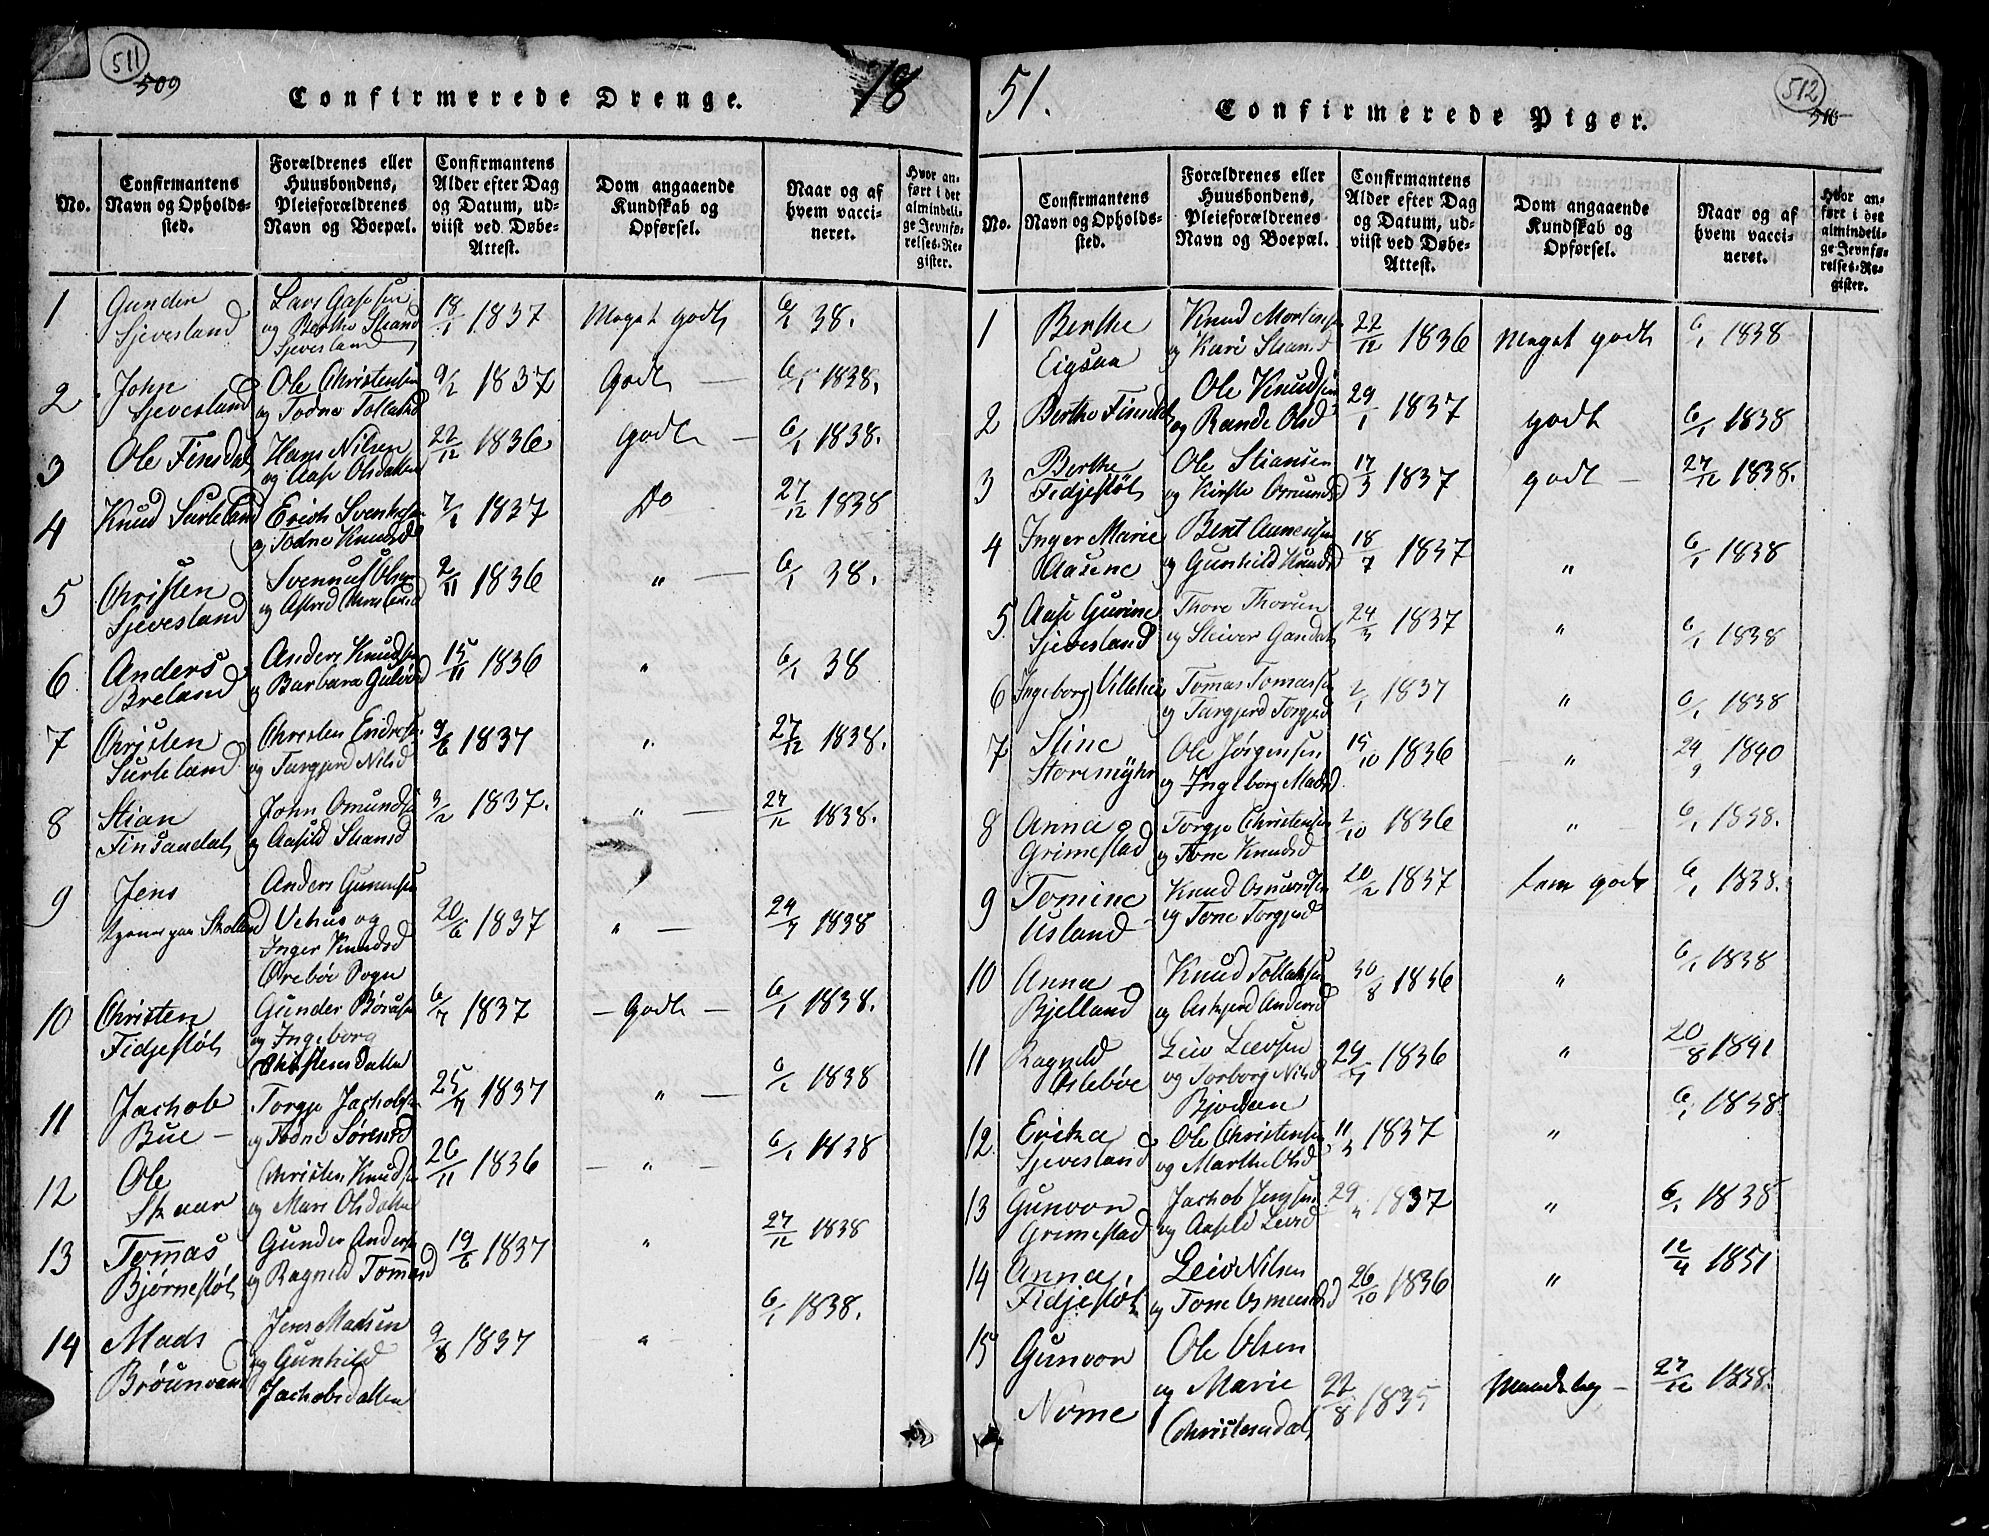 511
509
Confirmerede Drenge.
18
No.
Confirmantens Navn og Opholds-sted.
Forældrenes eller Huusbondens, Pleieforældrenes Navn og Boepæl.
Confirmantens Alder efter Dag og Datum, ud-viist ved Døbe-Attest.
Dom angaaende Kundskab og Opførsel.
Naar og af hvem vacci-neret.
Hvor an-ført i det almindeli-ge Jevnfø-relses-Re-gister.
1 Gunder Lars Aasesen 18/1 1837 Meget godt 6/1 38.
Sjevesland og Berthe Stiansd
Sjevesland
2 John Ole Christensen 9/2 1837 Godt — 6/1 1838.
Sjevesland og Todne Tollaksd
3 Ole Finsdal Hans Nilsen 22/12 1836. Godt — 6/1 1838.
og Aase Olsdatter
4 Knud Surteland Erich Svenhs 1837 Do 27/12 1838
og Todne Knudsd
5 Christen Svennus Olsen 2/11 1836 " — 6/1 38.
Sjevesland og Astrid
6 Anders Anders Knudsen 15/11 1836 " 6/1 38
Breland og Barbara
7 Christen Christen Endres 9/6 1837 " 27/12 1838.
Surteland og Targjerd Nilsd
8 Stian John Omunds 3/2 1837. " — 27/12 1838.
Finsaadal og Aasild Stiansd
9 Jens Anders Gunuldsen
Skolland Vehus og 20/6 1837 " — 24/7 1838
Inger Knudsd
Ørebøe Sogn
10 Christen Gunder Børuf 6/7 1837 — Godt — 6/1 1838.
Fidjestøl og Ingeborg
Christensdatter
11 Jachob Torgje Jachobsen 25/7 1837 " — 6/1 1838
Bue — og Todne Sørensd
12 Ole Christen Knudsen 26/11 1836 — " — 6/1 1838
Skaar og Mari Olsdatter
13 Tomas Gunder Anders 19/6 1837 " 27/12 1838
Bjørnestøl og Ragnild Tomasd
14 Mads Jens Madsen 9/8 1837 — " — 6/1 1838.
Brøunvand og Gunhild
Jachobsdatter
51.
Confirmerede Piger.
512
510
No.
Confirmantens Navn og Opholds-sted.
Forældrenes eller Huusbondens, Pleieforældrenes Navn og Boepæl.
Confirmantens Alder efter Dag og Datum, ud-viist ved Døbe-Attest.
Dom angaaende Kundskab og Opførsel.
Naar og af hvem vacci-neret.
Hvor an-ført i det almindeli-ge Jevnfø-relses-Re-gister.
1 Berthe Knud Mortensen 22/12 1836 Meget godt 6/1 1838
Eigsaa og Kari Stiansd
2 Berthe Finsdal Ole Knudsen 29/1 1837 godt 6/1 1838
og Rande Olsd
3 Berthe Ole Stiansen 17/3 1837 godt — 27/12 1838.
Fidjestøl og Kirste Omundsd
4 Inger Marie Bent Aanensen 18/7 1837 " 6/1 1838
Aasene og Gunhild Knudsd
5. Aase Gurine Thore Thorsen 24/3 1837 " 6/1 1838
Sjevesland og Steiver Gandal
6 Ingeborg Tomas Tomassen 2/1 1837 " 6/1 1838
og Targjerd Torgjesd
7 Stine Ole Jørgensen 15/10 1836 " 24/9 1840
Storemyhr og Ingeborg Madsd
8 Anna Torgje Christensen 2/10 1836 " 6/1 1838.
Grimestad og Tone Knudsd
9 Tomine Knud Osmundsen 20/2 1837 godt 6/1 1838.
Usland og Tone Torgjesd
10 Anna Knud Tollaksen 30/8 1836 " 6/1 1838
Bjelland og Askjerd Andersd
11 Ragnild Leiv Leevsen 1836 " 20/8 1841
Oslebøe og Torborg Nilsd
Bjodsen
12. Ericka Ole Christensen 11/3 1837 " 6/1 1838
Sjevesland og Marthe Olsd
13 Gunvor Jachob Jensen 1837 " 6/1 1838
Grimestad og Aasild Leivd
14 Anna Leiv Nilsen 26/10 1836 " 12/4 1851
Fidjestøl og Tone Osmundsd
15 Gunvor Ole Olsen
Nome og Marie 22/8 1835 27/12 1838.
Christensdat